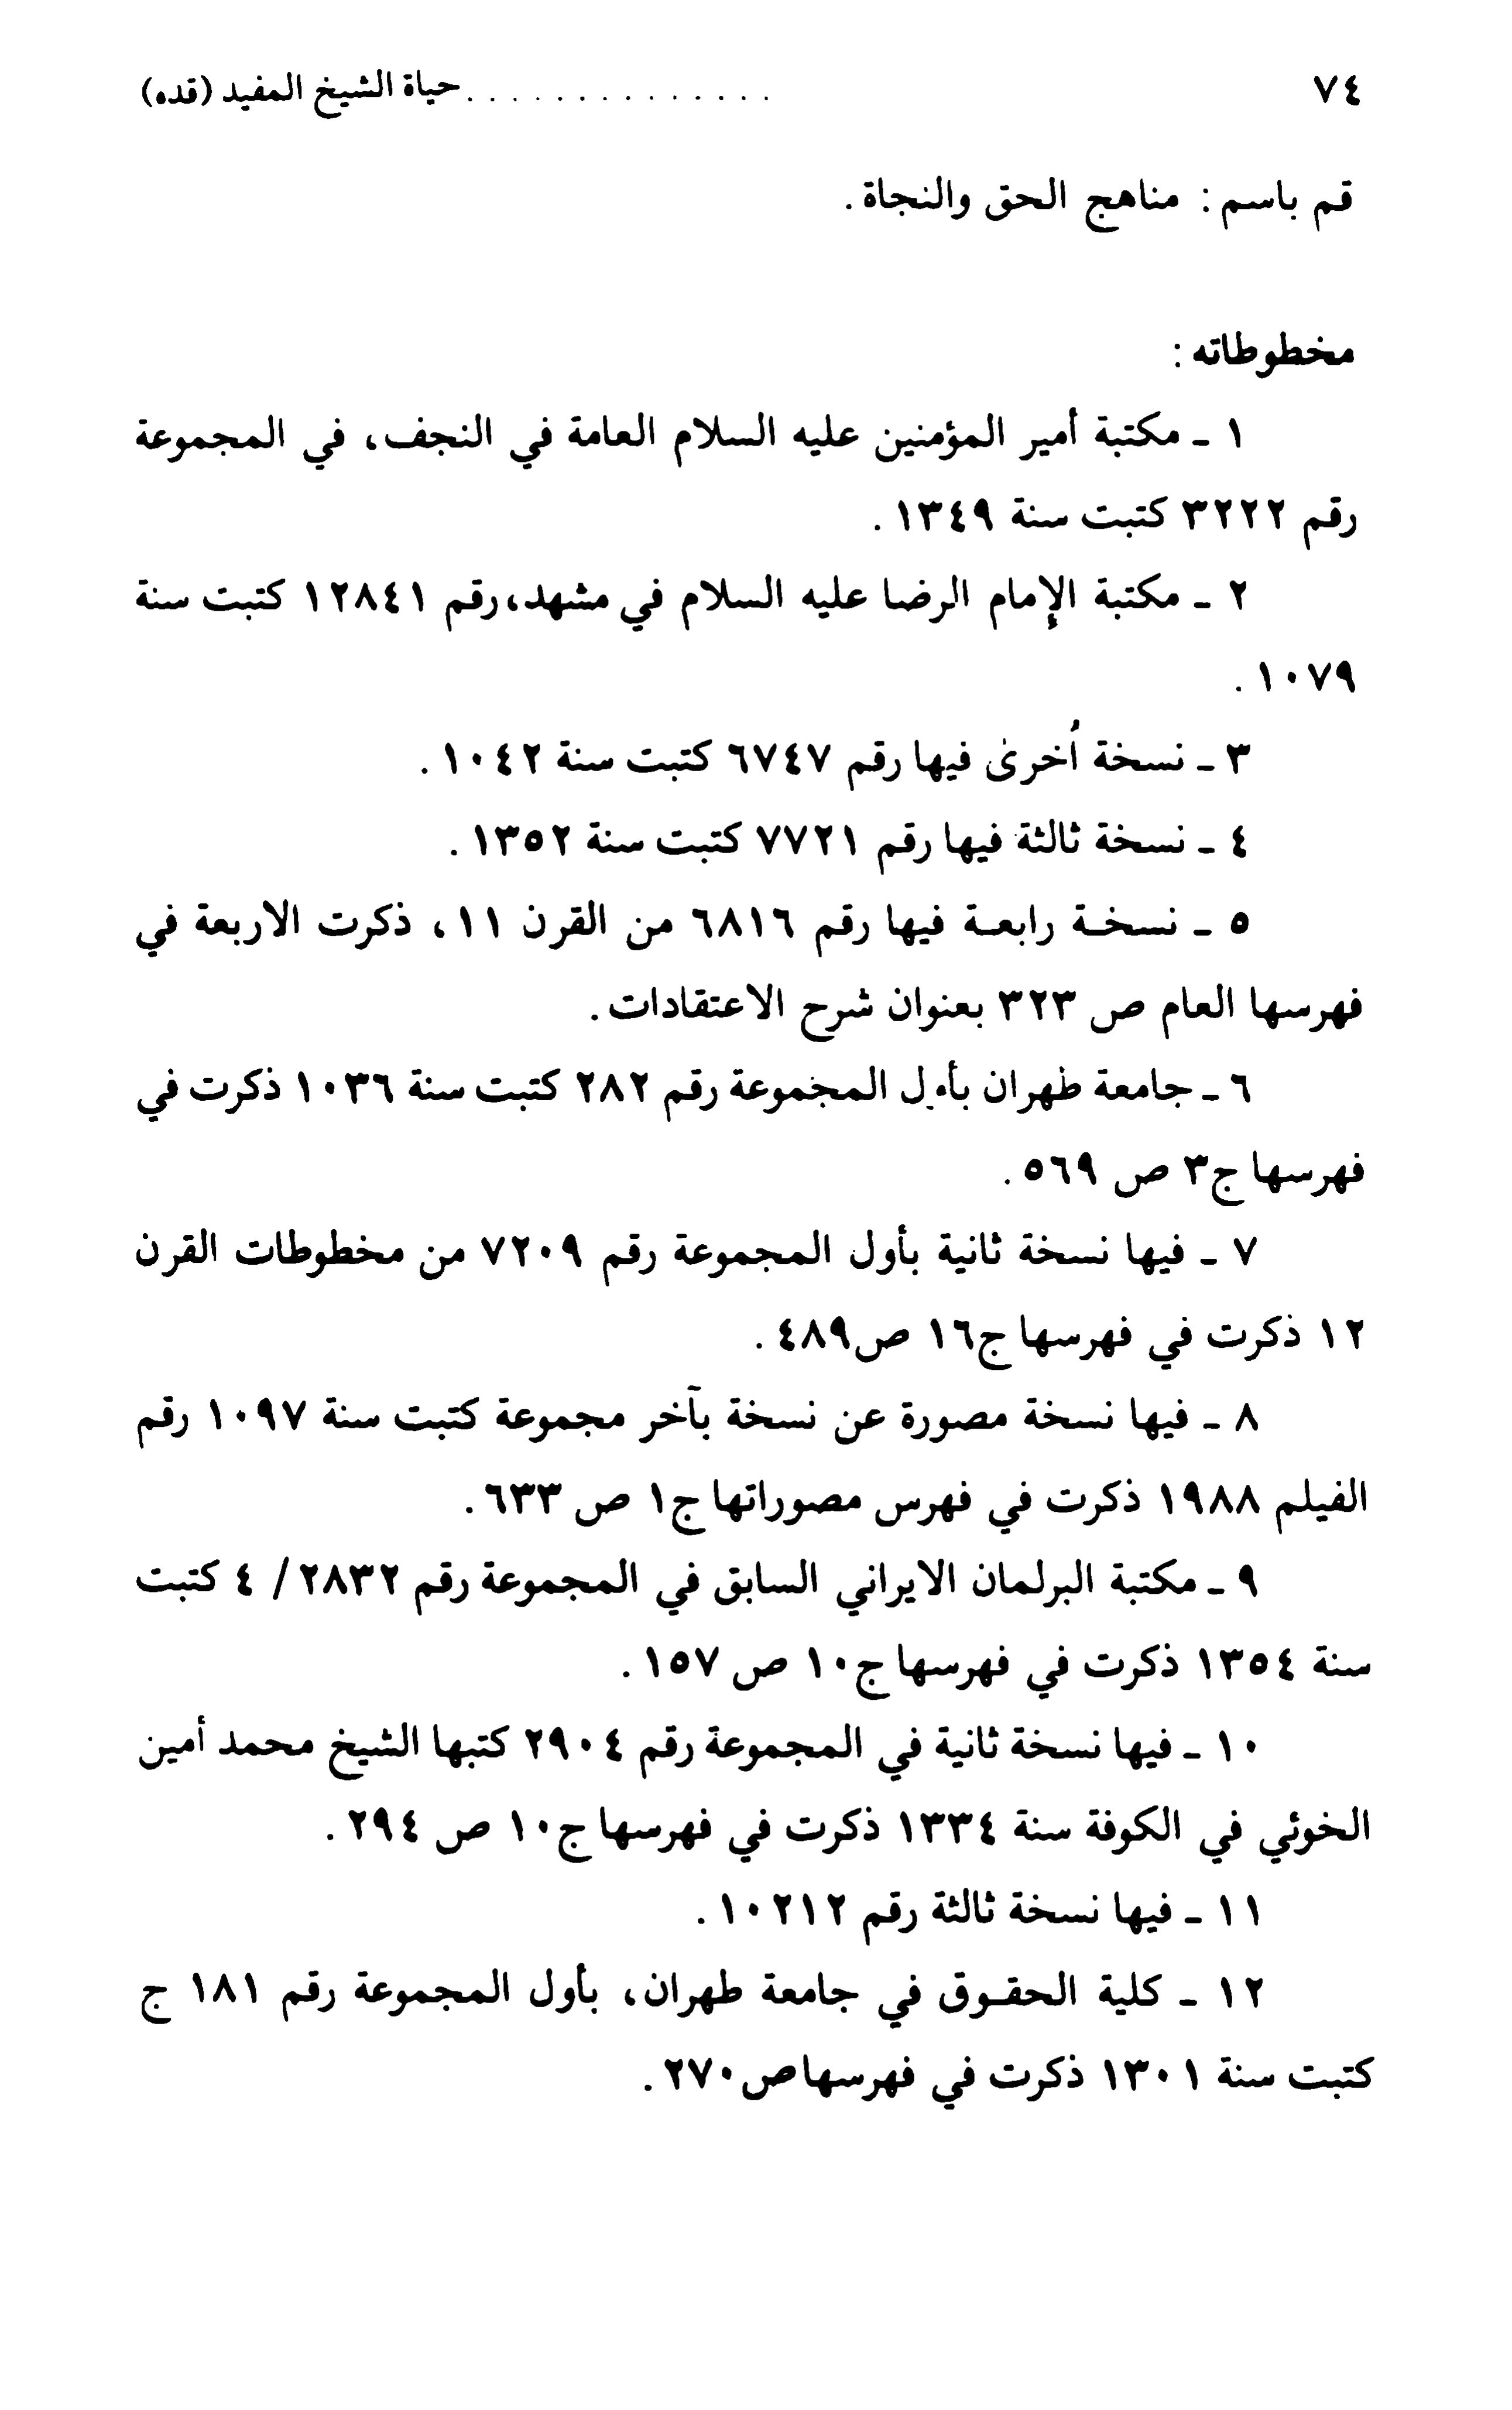 ٧٤ . . . . . . . . . . . . . . حياة الشيخ المفيد (قده)
قم باسم : مناهج الحق والنجاة .
مخطوطاته :
١ ـ مكتبة أمير المؤمنين عليه السلام العامة في النجف، في المجموعة
رقم ٣٢٢٢ كتبت سنة ١٣٤٩ .
٢ ـ مكتبة الإمام الرضا عليه السلام في مشهد، رقم ١٢٨٤١ كتبت سنة
١٠٧٩ .
٣ ـ نسخة أُخرىٰ فيها رقم ٦٧٤٧ كتبت سنة ١٠٤٢ .
٤ ـ نسخة ثالثة فيها رقم ٧٧٢١ كتبت سنة ١٣٥٢ .
٥ ـ نسخـة رابعـة فيها رقم ٦٨١٦ من القرن ١١، ذكرت الاربعة في
فهرسها العام ص ٣٢٣ بعنوان شرح الاعتقادات .
٦ ـ جامعة طهران بأول المجموعة رقم ٢٨٢ كتبت سنة ١٠٣٦ ذكرت في
فهرسها ج٣ ص ٥٦٩ .
٧ ـ فيها نسخة ثانية بأول المجموعة رقم ٧٢٠٩ من مخطوطات القرن
١٢ ذكرت في فهرسها ج١٦ ص٤٨٩ .
٨ ـ فيها نسخة مصورة عن نسخة بآخر مجموعة كتبت سنة ١٠٩٧ رقم
الفيلم ١٩٨٨ ذكرت في فهرس مصوراتها ج١ ص ٦٣٣ .
٩ ـ مكتبة البرلمان الايراني السابق في المجموعة رقم ٢٨٣٢ / ٤ كتبت
سنة ١٣٥٤ ذكرت في فهرسها ج١٠ ص ١٥٧ .
١٠ ـ فيها نسخة ثانية في المجموعة رقم ٢٩٠٤ كتبها الشيخ محمد أمين
الخوئي في الكوفة سنة ١٣٣٤ ذكرت في فهرسها ج١٠ ص ٢٩٤ .
١١ ـ فيها نسخة ثالثة رقم ١٠٢١٢ .
١٢ ـ كلية الحقـوق في جامعة طهران، بأول المجموعة رقم ١٨١ ج
كتبت سنة ١٣٠١ ذكرت في فهرسها ص ٢٧٠ .